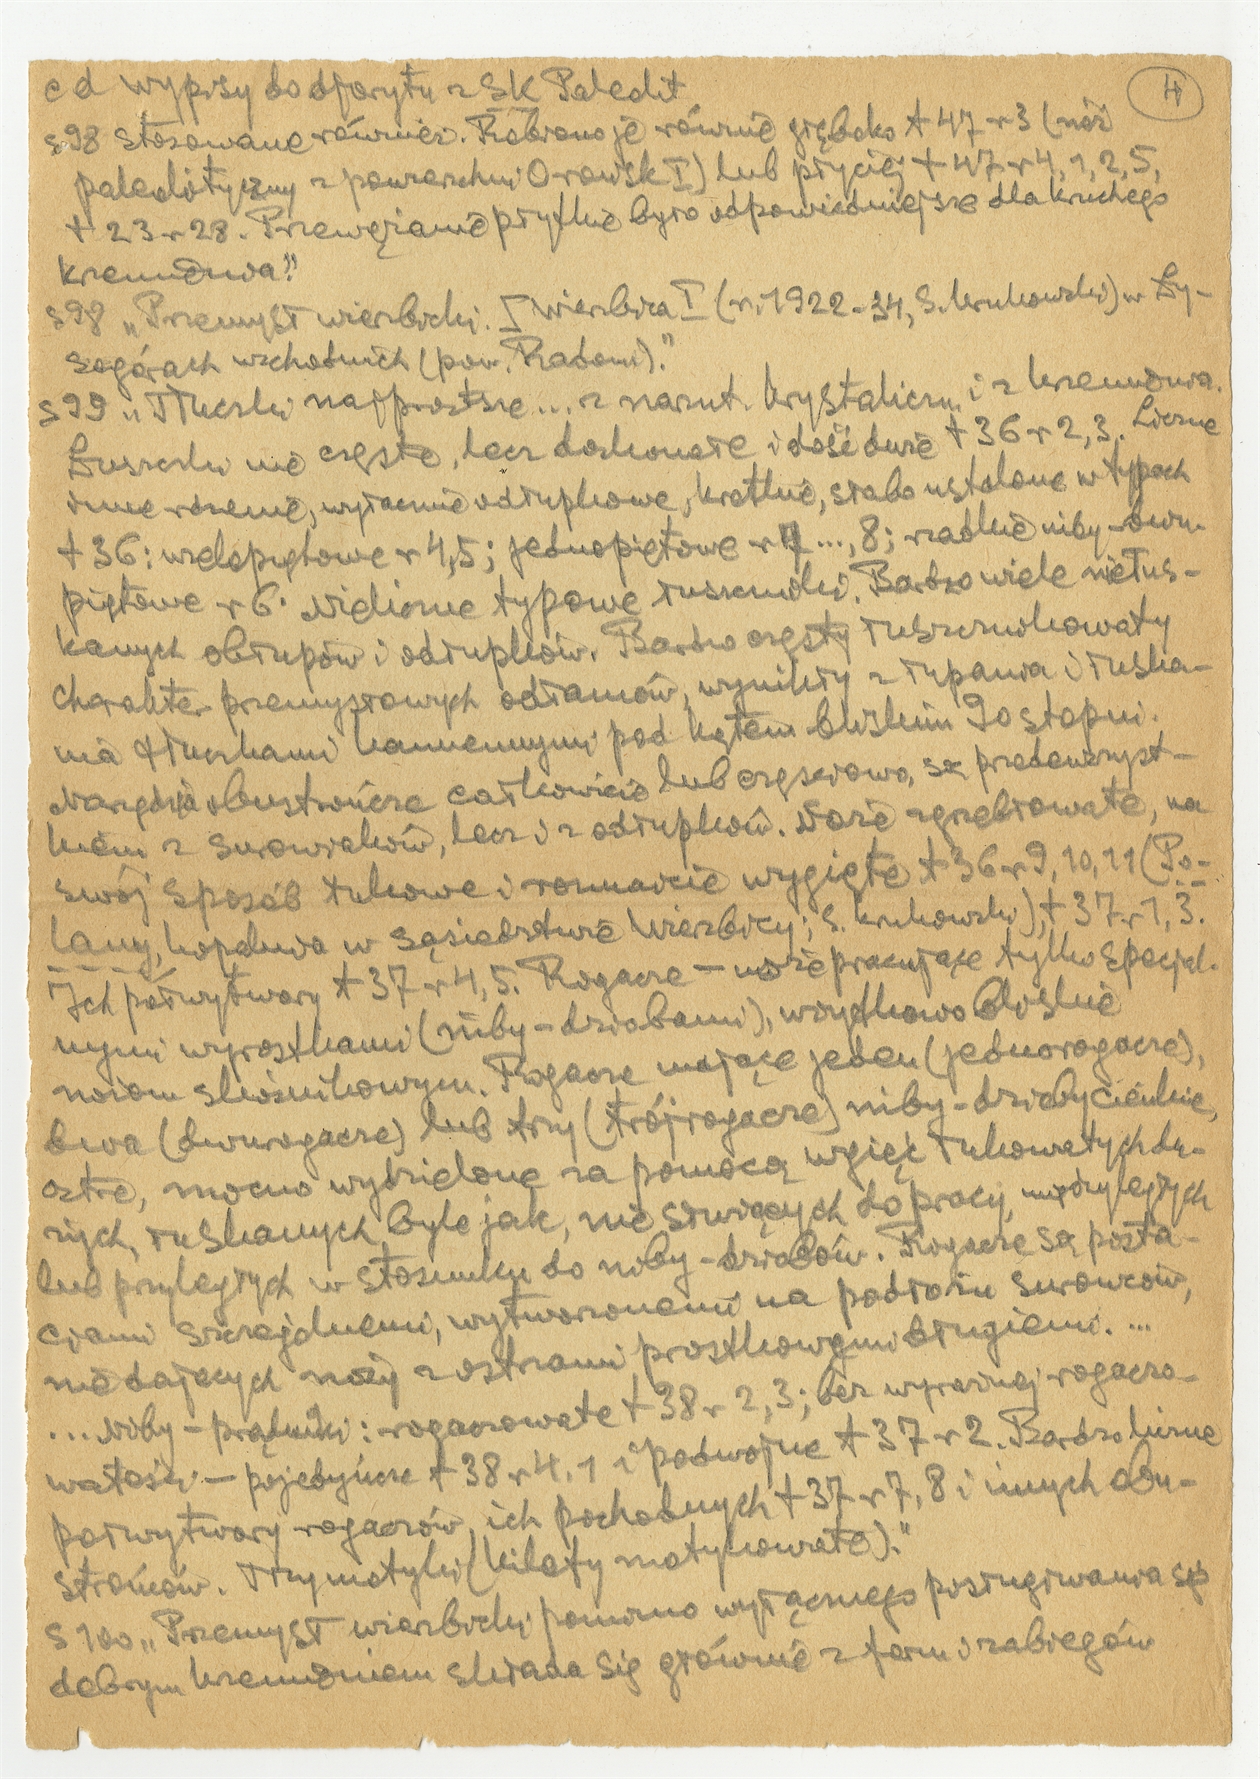 cd wypisy do dforytu z SK Paleolit
4
s 98 stosowane również. Robiono je równie głęboko t 47 r 3 (nóż
paleolityczny z powierzchni Orońsk I) lub płyciej t 47 r 4, 1, 2, 5,
t 23 r 28. Przewężanie płytkie było odpowiedniejsze dla kruchego
krzemienia."
s 98 „Przemysł wierzbicki. Wierzbica I (r. 1922-34, S. Krukowski) w Ły-
sogórach wschodnich (pow. Radom)."
s 99 „Tłuczki najprostsze... z narzut. krystaliczn. i z krzemienia.
Łuszczki nie częste, lecz doskonałe i dość duże t 36 r 2, 3. Liczne
inne rdzenie, wyłącznie odłupkowe, krótkie, słabo ustalone w typach
t 36: wielopiętowe r 4, 5; jednopiętowe r 7 ..., 8; rzadkie niby-dwu-
piętowe r 6. Nieliczne typowe łuszczki. Bardzo wiele niełus-
kanych obłupów i odłupków. Bardzo częsty łuszczniowaty
charakter przemysłowych odłamów, wynikły z łupania i łuska-
nia tłuczkami kamiennymi pod kątem bliskim 90 stopni.
Narzędzia obustrończe całkowicie lub częściowo, są przedewszyst-
kiem z surowiaków, lecz i z odłupków. Noże zgrzebłowate, na
swój sposób łukowe i rozmaicie wygięte t 36 r 9, 10, 11 (Po-
lany, kopalnia w sąsiedztwie Wierzbicy; S. Krukowski), t 37 r 1, 3.
Ich półwytwory t 37 r 4, 5. Rogacze – noże pracujące tylko specjal-
nymi wyrostkami (niby-dziobami), użytkowo bliskie
nożom słuśnikowym. Rogacze mające jeden (jednorogacze),
dwa (dwurogacze) lub trzy (trójrogacze) niby-dzioby cienkie,
ostre, mocno wydzielone za pomocą wgięć łukowatych du-
żych, łuskanych byle jak, nie służących do pracy, międzyległych
lub przyległych w stosunku do niby-dziobów. Rogacze są posta-
ciami szczególnemi, wytworzonemi na podłożu surowców,
nie dających noży z ostrzami prostkowymi długiemi. ...
... Niby-prądniki: rogaczowate t 38 r 2, 3; bez wyraźnej rogaczo-
watości – pojedyńcze t 38 r 4, 1 i podwójne t 37 r 2. Bardzo liczne
półwytwory rogaczów, ich pochodnych t 37 r 7, 8 i innych obu-
strońców. Trzy motyki (kilofy motykowate)."
s 100 „Przemysł wierzbicki pomimo wyłącznego posługiwania się
dobrym krzemieniem składa się głównie z form i zabiegów